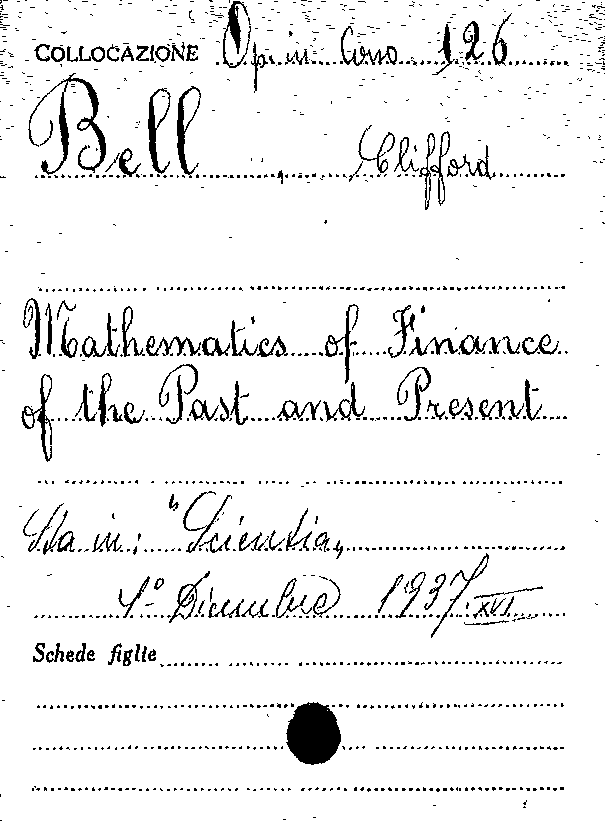 COLLOCAZIONE Op. in Cons 126
Bell, Clifford
Mathematics of Finance
of the Past and Present
Sta in: "Scientia„
1º Dicembre 1937. XVI
Schede figlie